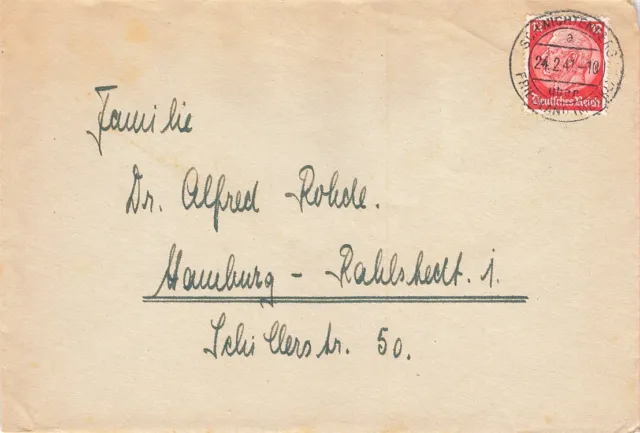 a
24.2.41-10
über
Deutsches Reich
Familie
Dr. Alfred Rohde.
Hamburg - Rahlstedt. 1.
Schillerstr. 50.